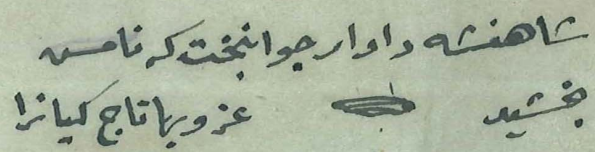 شاهنشه دادار جوانبخت که نامس
بخشید عز و بها تاج کیانرا